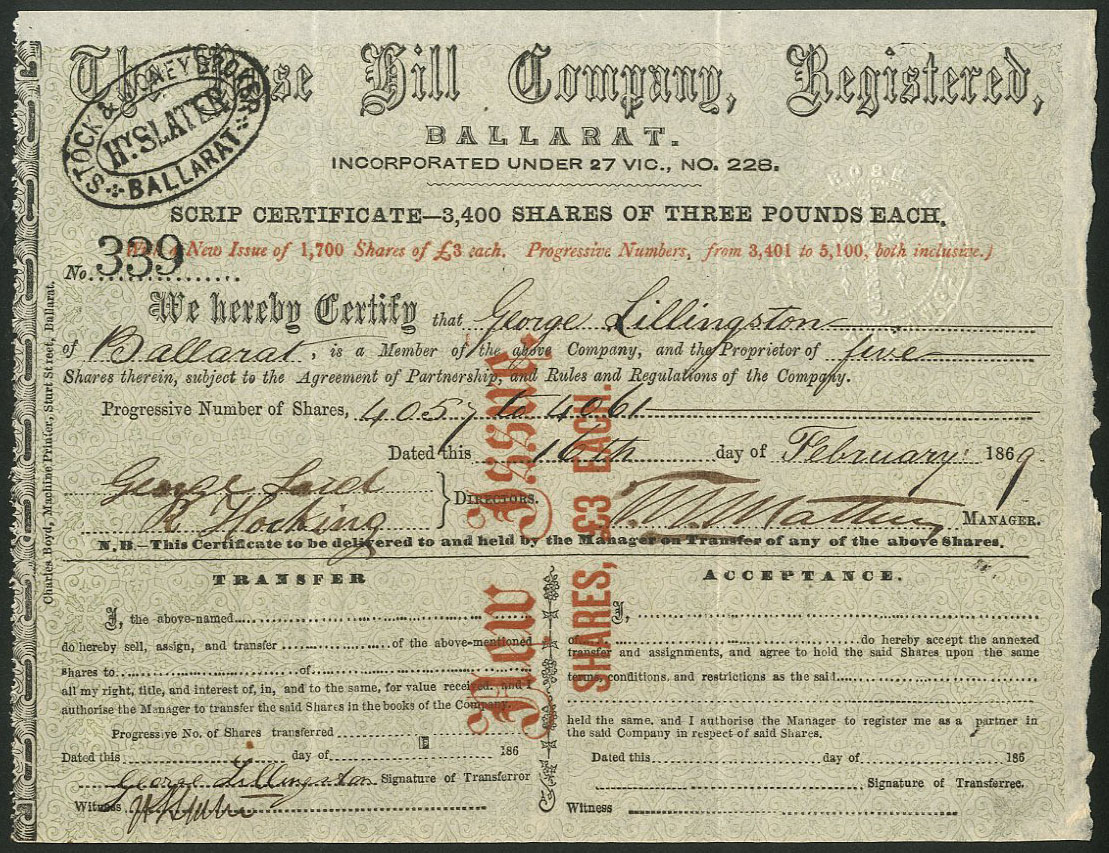 The Rose Hill Company, Registered,
BALLARAT.
INCORPORATED UNDER 27 VIC., NO. 228.
STOCK & MONEY BROKER
HY. SLATER
BALLARAT
SCRIP CERTIFICATE—3,400 SHARES OF THREE POUNDS EACH.
New Issue of 1,700 Shares of £3 each. Progressive Numbers, from 3,401 to 5,100, both inclusive.)
No. 339
We hereby Certify that George Lillingston
of Ballarat, is a Member of the above Company, and the Proprietor of five
Shares therein, subject to the Agreement of Partnership, and Rules and Regulations of the Company.
Progressive Number of Shares, 4057 to 4061
Dated this 16th day of February 1869
George
R Hocking
DIRECTORS.
MANAGER.
N.B.—This Certificate to be delivered to and held by the Manager on Transfer of any of the above Shares.
New Issue.
SHARES, £3 EACH.
Charles Boyd, Machine Printer, Sturt Street, Ballarat.
TRANSFER
I, the above-named
do hereby sell, assign, and transfer of the above-mentioned
shares to of
all my right, title, and interest of, in, and to the same, for value received, and I
authorise the Manager to transfer the said Shares in the books of the Company.
Progressive No. of Shares transferred
Dated this day of 186
George Lillingston Signature of Transferror
Witness
ACCEPTANCE.
I,
of do hereby accept the annexed
transfer and assignments, and agree to hold the said Shares upon the same
terms, conditions, and restrictions as the said
held the same, and I authorise the Manager to register me as a partner in
the said Company in respect of said Shares.
Dated this day of 186
Signature of Transferree.
Witness